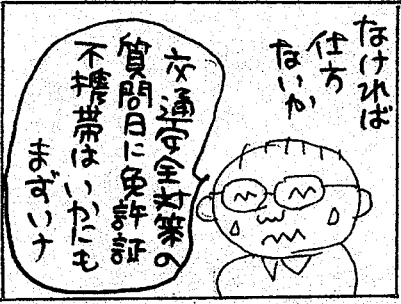 なければ
仕方
ないか
交通安全対策の
質問日に免許証
不携帯はいかにも
まずいナ